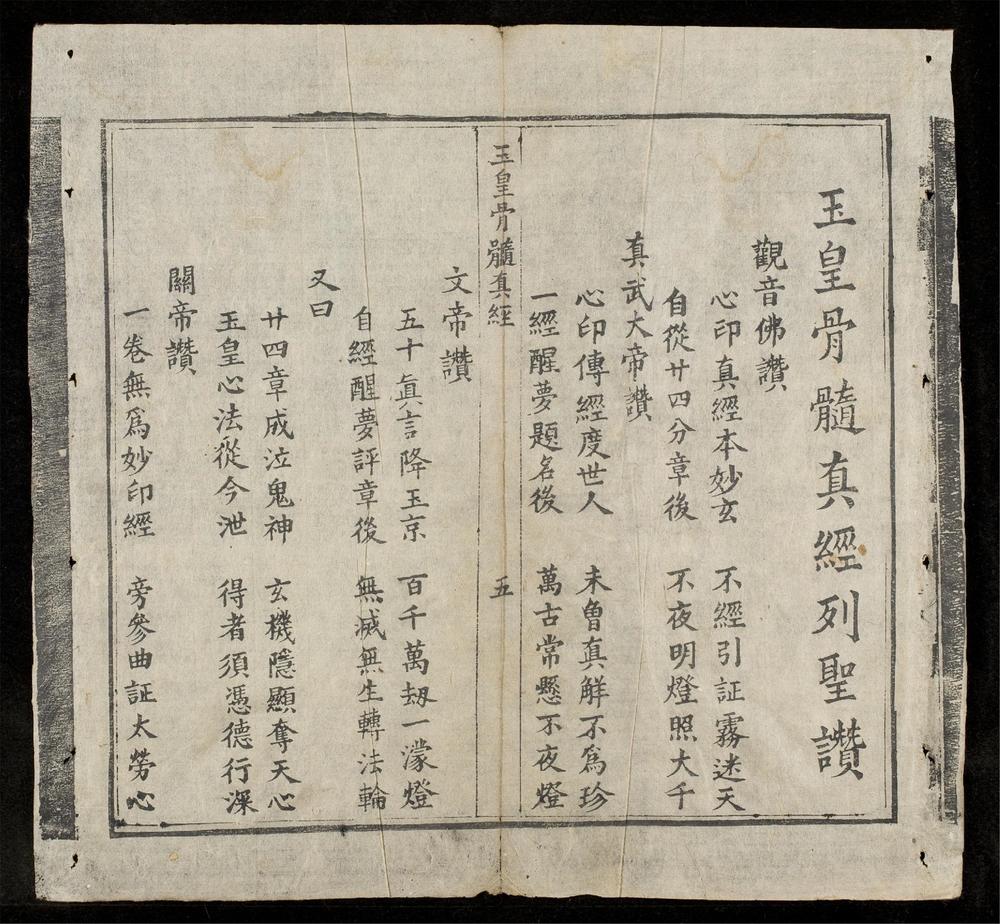 玉皇骨髓真經列聖讚
觀音佛讚
心印真經本妙玄　不經引証霧迷天
自從廿四分章後　不夜明燈照大千
真武大帝讚
心印傳經度世人　未魯真解不爲珍
一經醒夢題名後　萬古常懸不夜燈
玉皇骨髓真經　五
文帝讚
五十眞言降玉京　百千萬刼一濛燈
自經醒夢評章後　無滅無生轉法輪
又曰
廿四章成泣鬼神　玄機隱顯奪天心
玉皇心法從今泄　得者須憑德行深
關帝讚
一卷無爲妙印經　旁參曲証太勞心